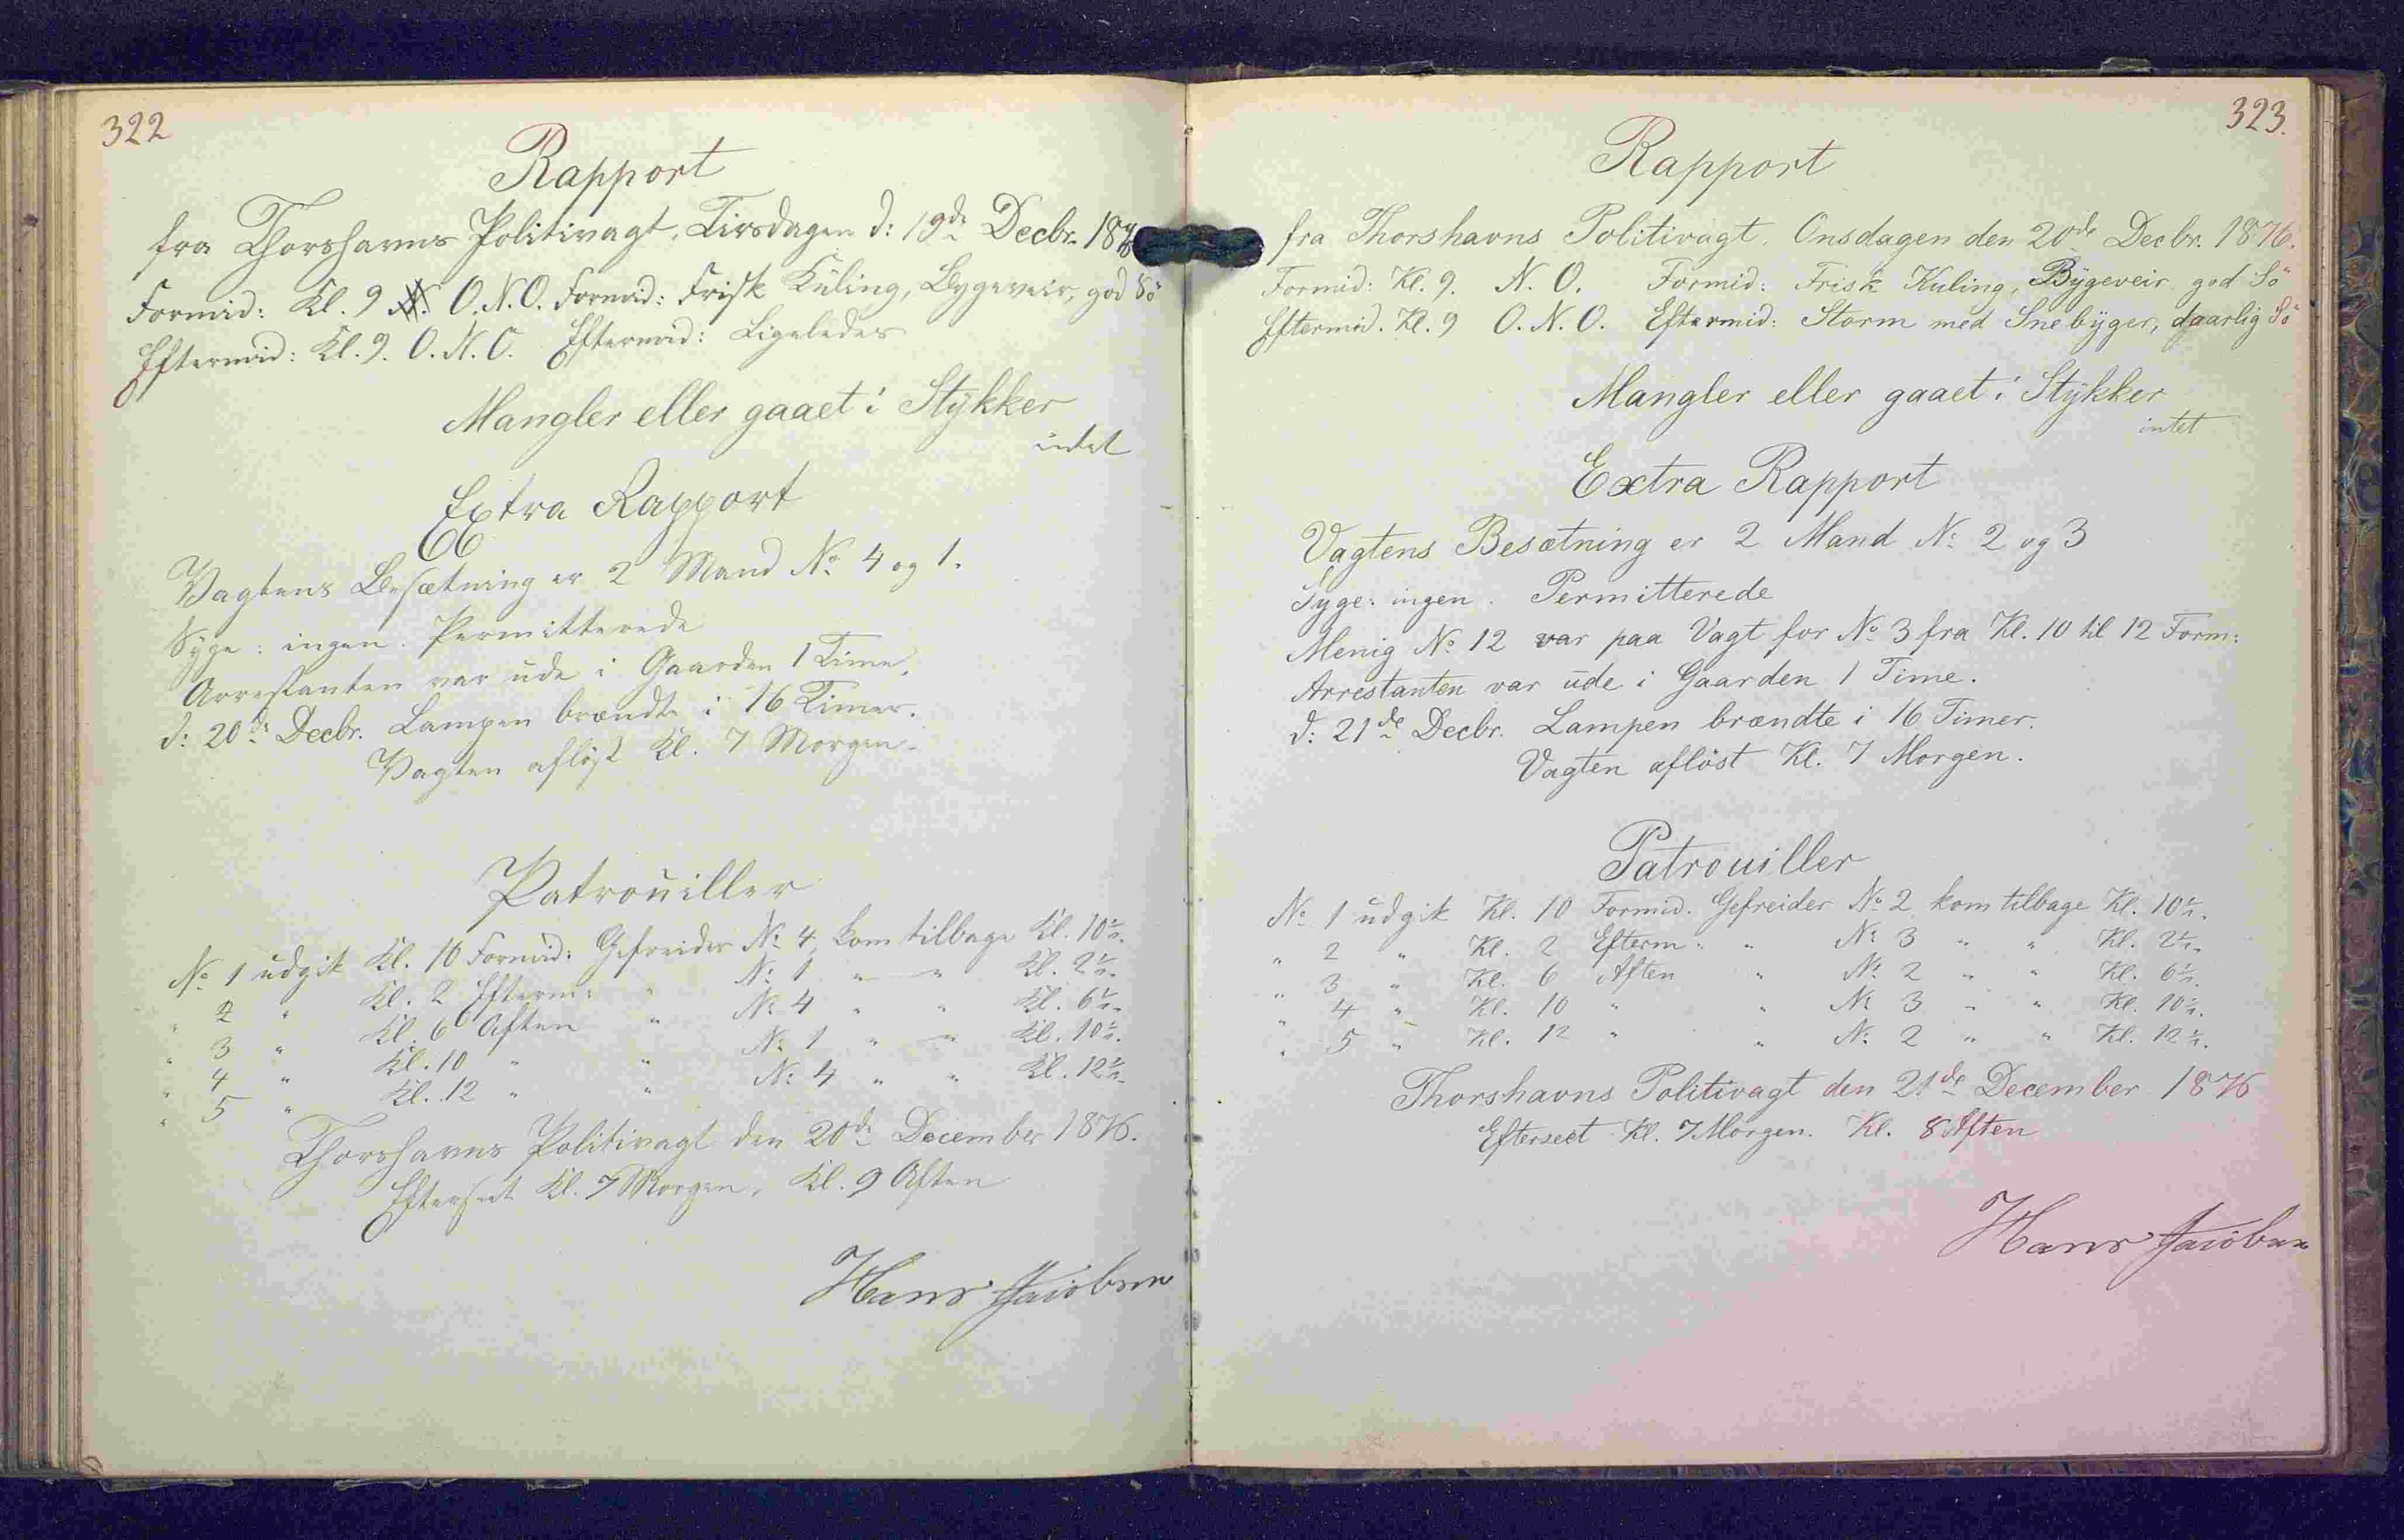 322
Rapport
fra Thorshavns Politivagt, Tirsdagen d: 19de Decbr. 1876
Formid: Kl. 9 O.N.O. Formid: Frisk Küling, Bygeveir, god Sö
Eftermid: Kl. 9. O.N.O. Eftermid: Ligeledes
Mangler eller gaaet i Stÿkker
intet
Extra Rapport
Vagtens Besætning er 2 Mand No 4 og 1.
Syge: ingen. Permitterede
Arrestanten var ude i Gaarden 1 Time.
d: 20de Decbr. Lampen brændte i 16 Timer.
Vagten aflöst Kl. 7 Morgen.
Patroüiller
No 1 udgik Kl. 10 Formid: Gefreider No 4 kom tilbage Kl. 10½.
" 2 " Kl. 2 Efterm: " No 1 " " Kl. 2½.
" 3 " Kl. 6 Aften " No 4 " " Kl. 6½.
" 4 " Kl. 10 " " No 1 " " Kl. 10½.
" 5 " Kl. 12 " " No 4 " " Kl. 12½.
Thorshavns Politivagt den 20de December 1876.
Efterseet Kl. 7 Morgen, Kl. 9 Aften
Hans Jacobsen
323.
Rapport
fra Thorshavns Politivagt. Onsdagen den 20de Decbr. 1876.
Formid: Kl. 9. N.O. Formid: Frisk Kuling, Bÿgeveir god Sö
Eftermid. Kl. 9 O.N.O. Eftermid: Storm med Snebÿger, daarlig Sö
Mangler eller gaaet i Stÿkker
intet
Extra Rapport
Vagtens Besætning er 2 Mand No 2 og 3
Syge: ingen. Permitterede
Menig No 12 var paa Vagt for No 3 fra Kl. 10 til 12 Form:
Arrestanten var ude i Gaarden 1 Time.
d: 21de Decbr. Lampen brændte i 16 Timer.
Vagten aflöst Kl. 7 Morgen.
Patrouiller
No 1 udgik Kl. 10 Formid. Gefreider No 2 kom tilbage Kl. 10½.
" 2 " Kl. 2 Efterm: " No 3 " " Kl. 2½.
" 3 " Kl. 6 Aften " No 2 " " Kl. 6½.
" 4 " Kl. 10 " " No 3 " " Kl. 10½.
" 5 " Kl. 12 " " No 2 " " Kl. 12½.
Thorshavns Politivagt den 21de December 1876
Efterseet Kl. 7 Morgen. Kl. 8 Aften
Hans Jacobsen